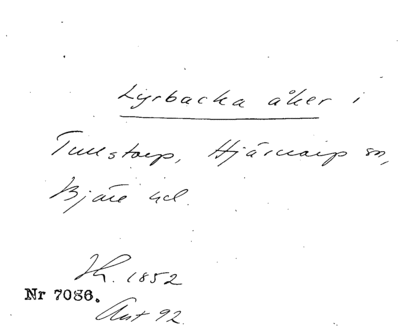 Lyrbacka åker i
Tullstorp, Hjärnarp sn,
Bjäre hd.
Th. 1852
Nr 7086.
Ant 92.